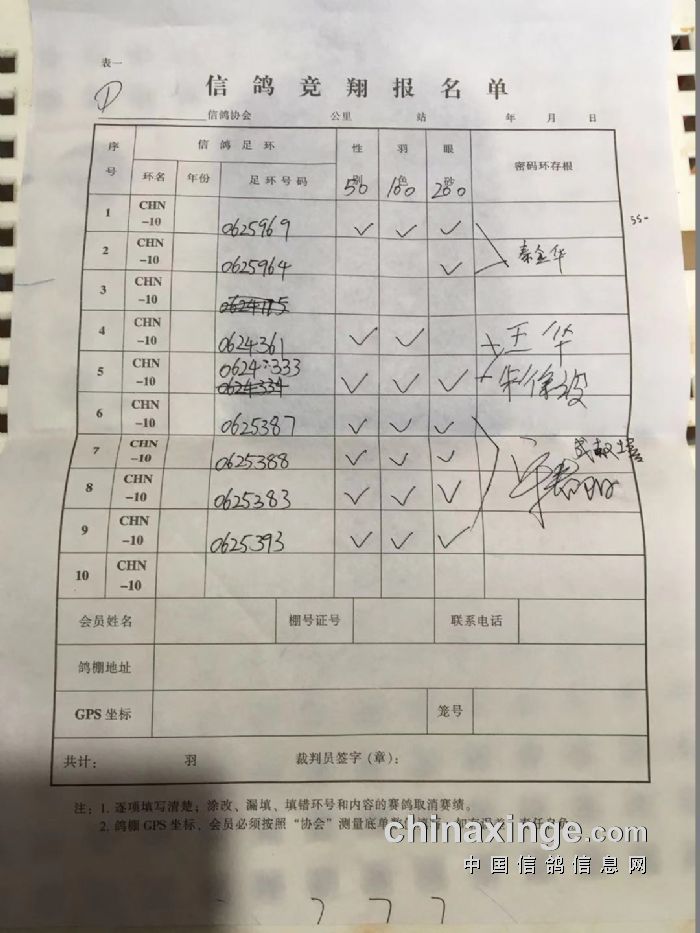 表一
信鸽竞翔报名单
信鸽协会 公里 站 年 月 日
序号 信鸽足环 性别 羽色 眼砂 密码环存根
环名 年份 足环号码 50 100 200
1 CHN-10 0625969 ✓ ✓ ✓
2 CHN-10 0625964 ✓ 秦金华
3 CHN-10
4 CHN-10 0624361 ✓ ✓ 王华
5 CHN-10 0624333 ✓ ✓ ✓
6 CHN-10 0625387 ✓ ✓ ✓
7 CHN-10 0625388 ✓ ✓ ✓
8 CHN-10 0625383 ✓ ✓ ✓
9 CHN-10 0625393 ✓ ✓ ✓
10 CHN-10
会员姓名 棚号证号 联系电话
鸽棚地址
GPS 坐标 笼号
共计: 羽 裁判员签字（章）:
注: 1. 逐项填写清楚；涂改、漏填、填错环号和内容的赛鸽取消赛绩。
2. 鸽棚 GPS 坐标、会员必须按照“协会”测量底单
chinaxinge.com
中国信鸽信息网